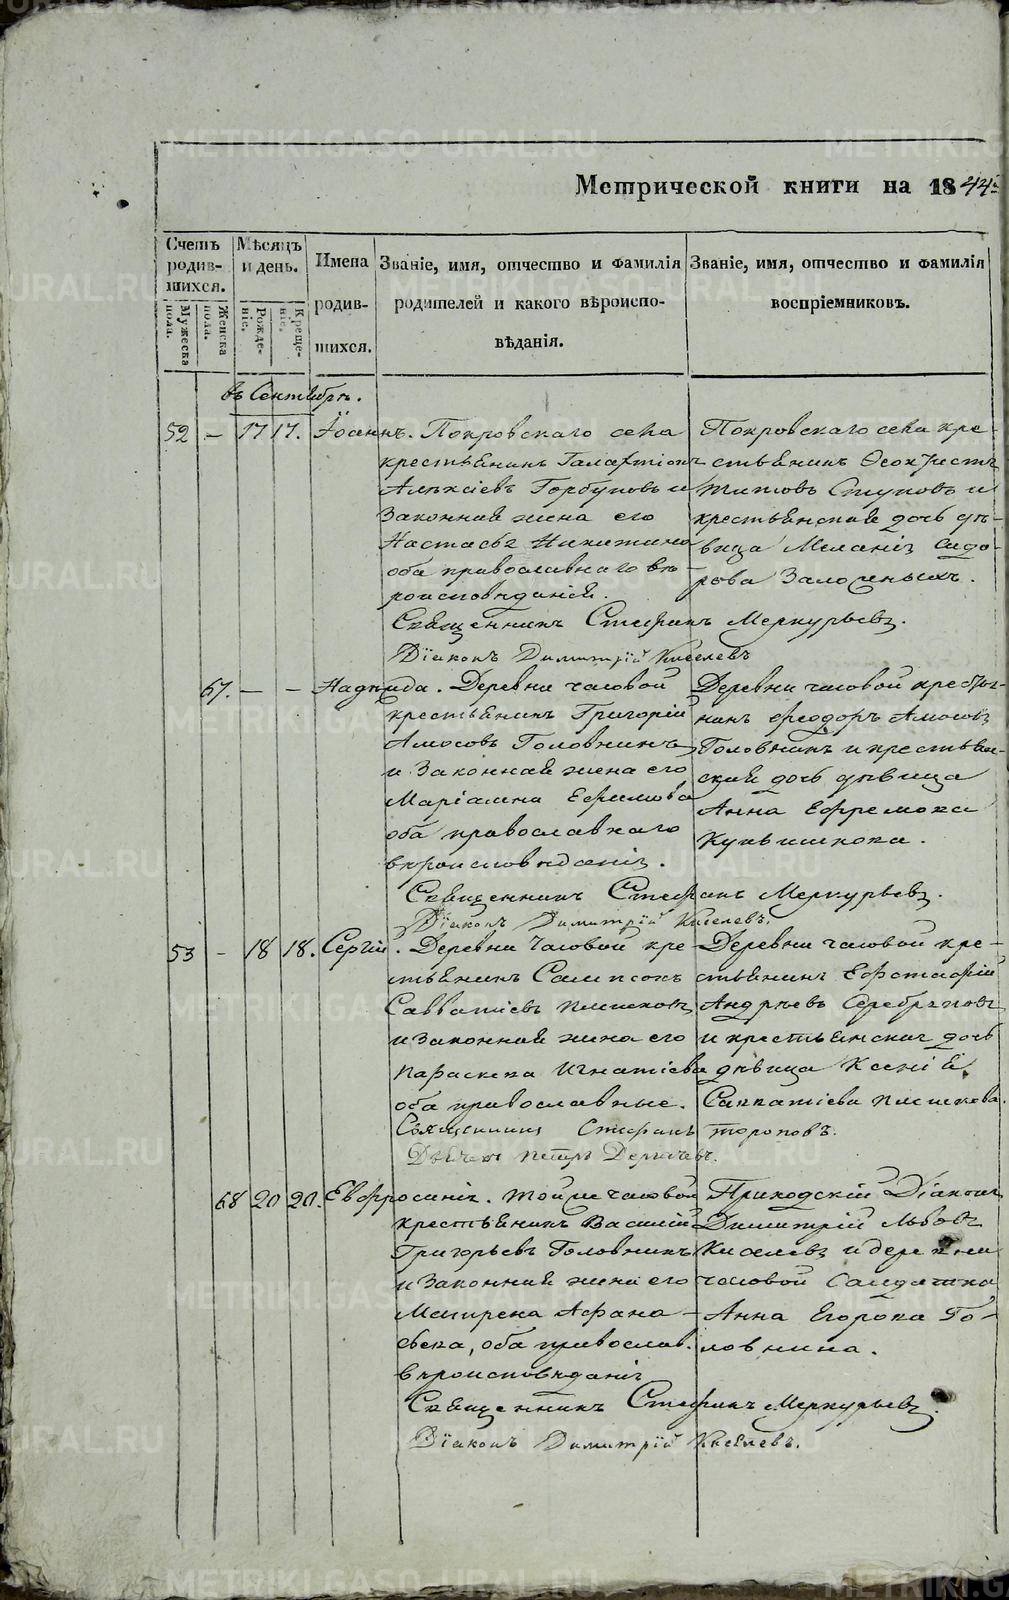 Метрической книги на 1844
Счетъ родившихся.
Мѣсяцъ и день.
Имена родившихся.
Званіе, имя, отчество и фамилія родителей и какого вѣроисповѣданія.
Званіе, имя, отчество и фамилія воспріемниковъ.
Мужеска пола.
Женска пола.
Рожденіе.
Крещеніе.
въ Сентябрѣ.
52 – 17 17. Іоаннъ. Покровскаго села
крестьянинъ Галактіонъ
Алексіевъ Горбуновъ и
законная жена его
Настасья Никитина
оба православнаго вѣ-
роисповѣданія.
Покровскаго села кре-
стьянинъ Ѳеоктистъ
Титовъ Ступовъ и
крестьянская дочь дѣ-
вица Меланія Сидо-
рова
Священникъ Стефанъ Меркурьевъ.
Діаконъ Димитрій Киселевъ
67. – – Надежда. Деревни Часовой
крестьянинъ Григорій
Амосовъ Головнинъ
и законная жена его
Маріамна Ефимова
оба православнаго
вѣроисповѣданія.
Деревни Часовой крестья-
нинъ Ѳеодоръ Амосовъ
Головнинъ и крестьян-
ская дочь дѣвица
Анна Ефремова
Священникъ Стефанъ Меркурьевъ.
Діаконъ Димитрій Киселевъ.
53 – 18 18. Сергій. Деревни Часовой кре-
стьянинъ Сампсонъ
Савватіевъ
и законная жена его
Параскева Игнатіева
оба православные.
Деревни Часовой кре-
стьянинъ Евстафій
Андреевъ Серебряковъ
и крестьянская дочь
дѣвица Ксенія
Савватіева
Священникъ Стефанъ Тороповъ.
Дьячекъ Петръ
68 20 20. Евфросинія. Той же Часовой
крестьянинъ Василій
Григорьевъ Головнинъ
и законная жена его
Матрена Афана-
сьева, оба православ.
вѣроисповѣданія
Приходскій Діаконъ
Димитрій Львовъ
Киселевъ и деревни
Часовой Солдатка
Анна Егорова Го-
ловнина.
Священникъ Стефанъ Меркурьевъ.
Діаконъ Димитрій Киселевъ.
METRIKI.GASO-URAL.RU